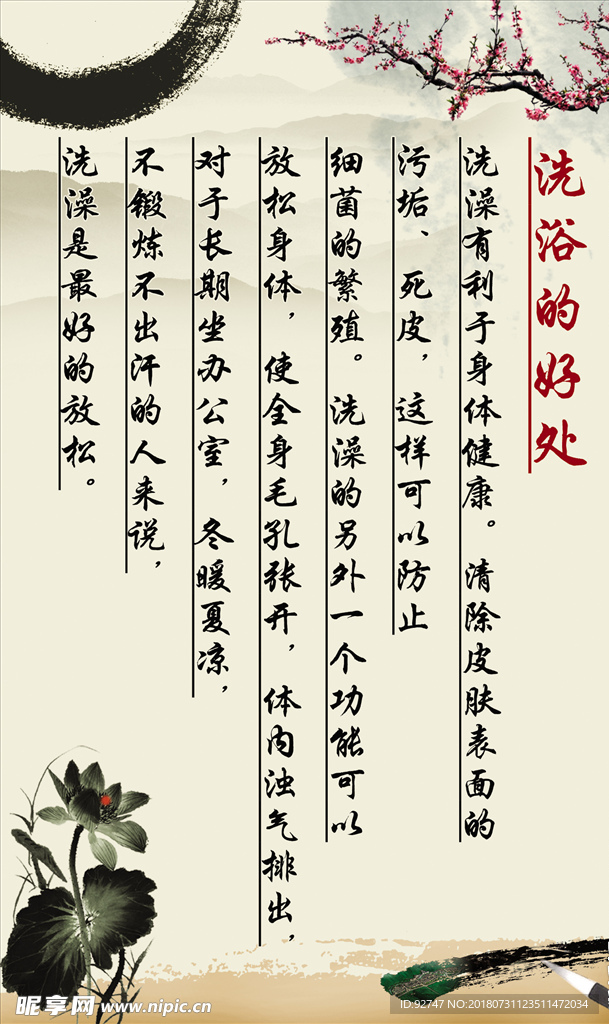 洗浴的好处
洗澡有利于身体健康。清除皮肤表面的
污垢、死皮，这样可以防止
细菌的繁殖。洗澡的另外一个功能可以
放松身体，使全身毛孔张开，体内浊气排出，
对于长期坐办公室，冬暖夏凉，
不锻炼不出汗的人来说，
洗澡是最好的放松。
昵享网 www.nipic.cn
ID:92747 NO:20180731123511472034